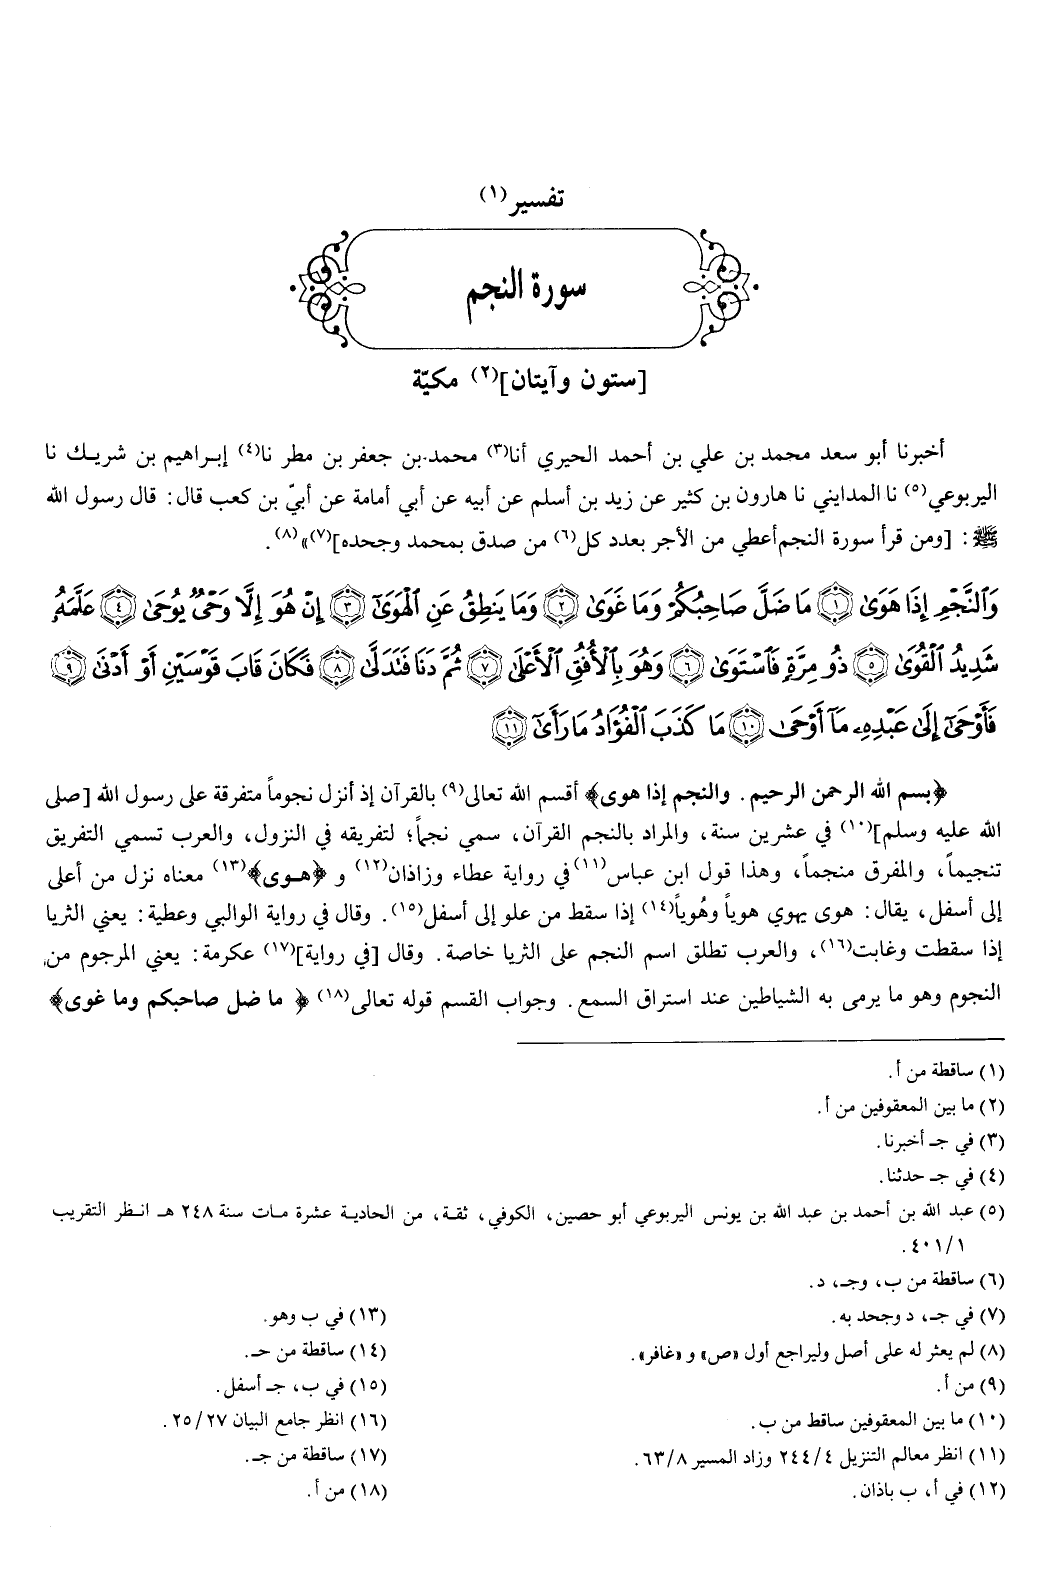 تفسير(١)
سورة النجم
[ستون وآيتان](٢) مكيّة
أخبرنا أبو سعد محمد بن علي بن أحمد الحيري أنا(٣) محمد بن جعفر بن مطر نا(٤) إبراهيم بن شريك نا
اليربوعي(٥) نا المدايني نا هارون بن كثير عن زيد بن أسلم عن أبيه عن أبي أمامة عن أبيّ بن كعب قال: قال رسول الله
ﷺ: [ومن قرأ سورة النجم أعطي من الأجر بعدد كل(٦) من صدق بمحمد وجحده](٧)»(٨).
وَٱلنَّجۡمِ إِذَا هَوَىٰ ۝١ مَا ضَلَّ صَاحِبُكُمۡ وَمَا غَوَىٰ ۝٢ وَمَا يَنطِقُ عَنِ ٱلۡهَوَىٰٓ ۝٣ إِنۡ هُوَ إِلَّا وَحۡيٞ يُوحَىٰ ۝٤ عَلَّمَهُۥ
شَدِيدُ ٱلۡقُوَىٰ ۝٥ ذُو مِرَّةٖ فَٱسۡتَوَىٰ ۝٦ وَهُوَ بِٱلۡأُفُقِ ٱلۡأَعۡلَىٰ ۝٧ ثُمَّ دَنَا فَتَدَلَّىٰ ۝٨ فَكَانَ قَابَ قَوۡسَيۡنِ أَوۡ أَدۡنَىٰ ۝٩
فَأَوۡحَىٰٓ إِلَىٰ عَبۡدِهِۦ مَآ أَوۡحَىٰ ۝١٠ مَا كَذَبَ ٱلۡفُؤَادُ مَا رَأَىٰٓ ۝١١
﴿بسم الله الرحمن الرحيم. والنجم إذا هوى﴾ أقسم الله تعالى(٩) بالقرآن إذ أنزل نجوماً متفرقة على رسول الله [صلى
الله عليه وسلم](١٠) في عشرين سنة، والمراد بالنجم القرآن، سمي نجماً؛ لتفريقه في النزول، والعرب تسمي التفريق
تنجيماً، والمفرق منجماً، وهذا قول ابن عباس(١١) في رواية عطاء وزاذان(١٢) و ﴿هوى﴾(١٣) معناه نزل من أعلى
إلى أسفل، يقال: هوى يهوي هوياً وهُوياً(١٤) إذا سقط من علو إلى أسفل(١٥). وقال في رواية الوالبي وعطية: يعني الثريا
إذا سقطت وغابت(١٦)، والعرب تطلق اسم النجم على الثريا خاصة. وقال [في رواية](١٧) عكرمة: يعني المرجوم من
النجوم وهو ما يرمى به الشياطين عند استراق السمع. وجواب القسم قوله تعالى(١٨) ﴿ ما ضل صاحبكم وما غوى﴾
(١) ساقطة من أ.
(٢) ما بين المعقوفين من أ.
(٣) في جـ أخبرنا.
(٤) في جـ حدثنا.
(٥) عبد الله بن أحمد بن عبد الله بن يونس اليربوعي أبو حصين، الكوفي، ثقة، من الحادية عشرة مات سنة ٢٤٨ هـ انظر التقريب
٤٠١/١.
(٦) ساقطة من ب، وجـ، د.
(٧) في جـ، د وجحد به.
(٨) لم يعثر له على أصل وليراجع أول «ص» و «غافر».
(٩) من أ.
(١٠) ما بين المعقوفين ساقط من ب.
(١١) انظر معالم التنزيل ٢٤٤/٤ وزاد المسير ٦٣/٨.
(١٢) في أ، ب باذان.
(١٣) في ب وهو.
(١٤) ساقطة من حـ.
(١٥) في ب، جـ أسفل.
(١٦) انظر جامع البيان ٢٥/٢٧.
(١٧) ساقطة من جـ.
(١٨) من أ.